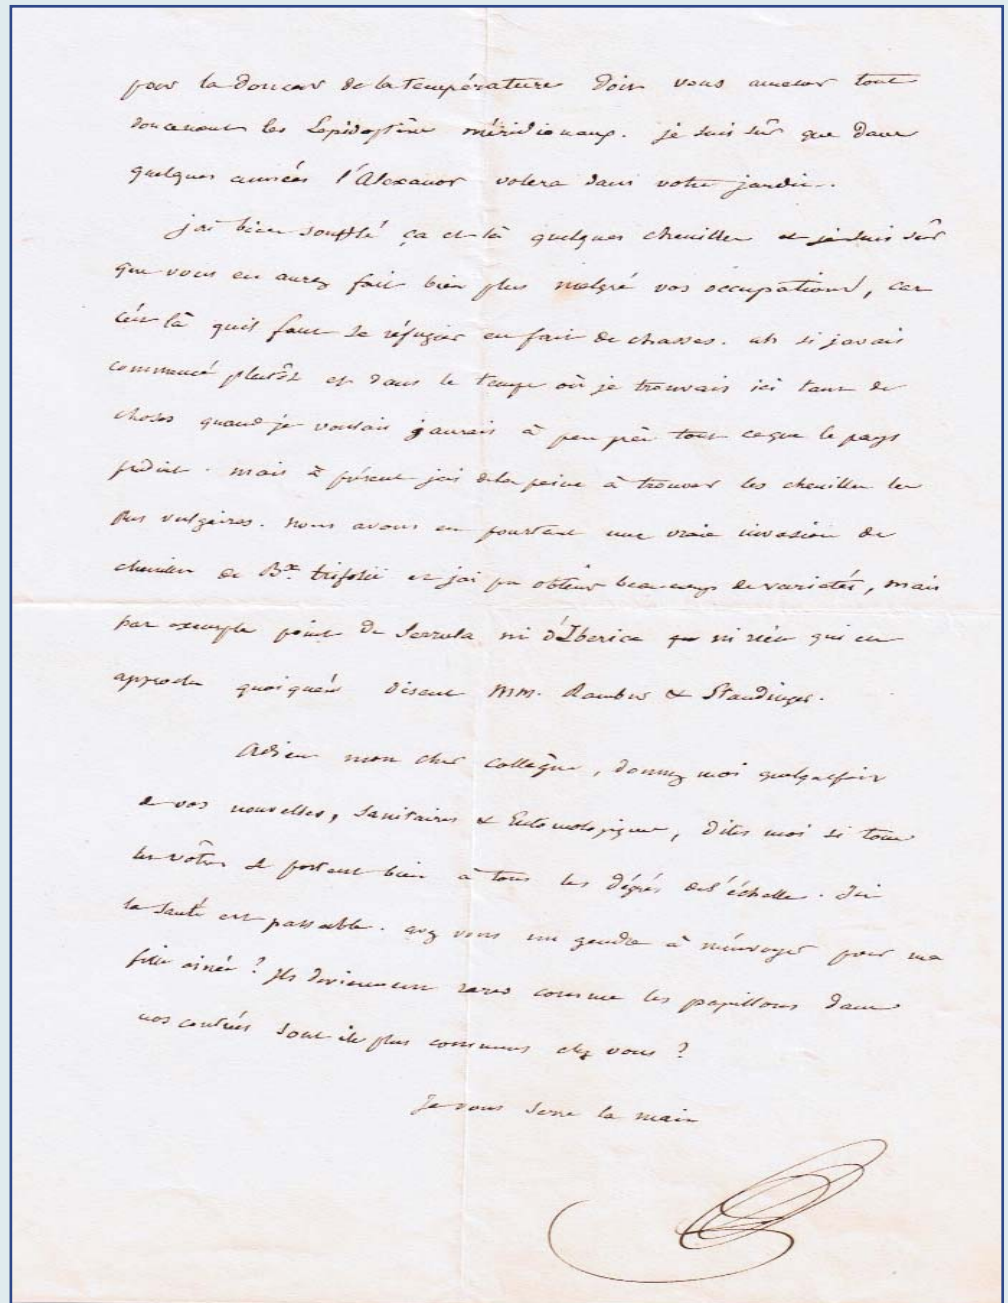 pour la douceur de la température doit vous amener tout
doucement les Lepidoptères méridionaux. je suis sûr que dans
quelques années l'Alexanor volera dans votre jardin.
jai bien soufflé ça et là quelques chenilles et je suis sûr
que vous en aurez fait bien plus malgré vos occupations, car
c'est là quil faut se réfugier en fait de chasses. ah si javais
commencé plutôt et dans le temps où je trouvais ici tant de
choses quand je voulais jaurais à peu près tout ce que le pays
produit. mais à présent jai de la peine à trouver les chenilles les
plus vulgaires. nous avons eu pourtant une vraie invasion de
chenilles de Bx trifolii et jai pu obtenir beaucoup de varietés, mais
par exemple point de Serrula ni d'Iberica ni rien qui en
approche quoiquen disent MM. Rambur & Staudinger.
Adieu mon cher collègue, donnez moi quelquefois
de vos nouvelles, Sanitaires & Entomologiques, dites moi si tous
les vôtres se portent bien à tous les dégrés de l'échelle. Ici
la santé est passable. avez vous un gendre à m'envoyer pour ma
fille ainée? Ils deviennent rares comme les papillons dans
nos contrées sont ils plus communs chez vous?
Je vous serre la main